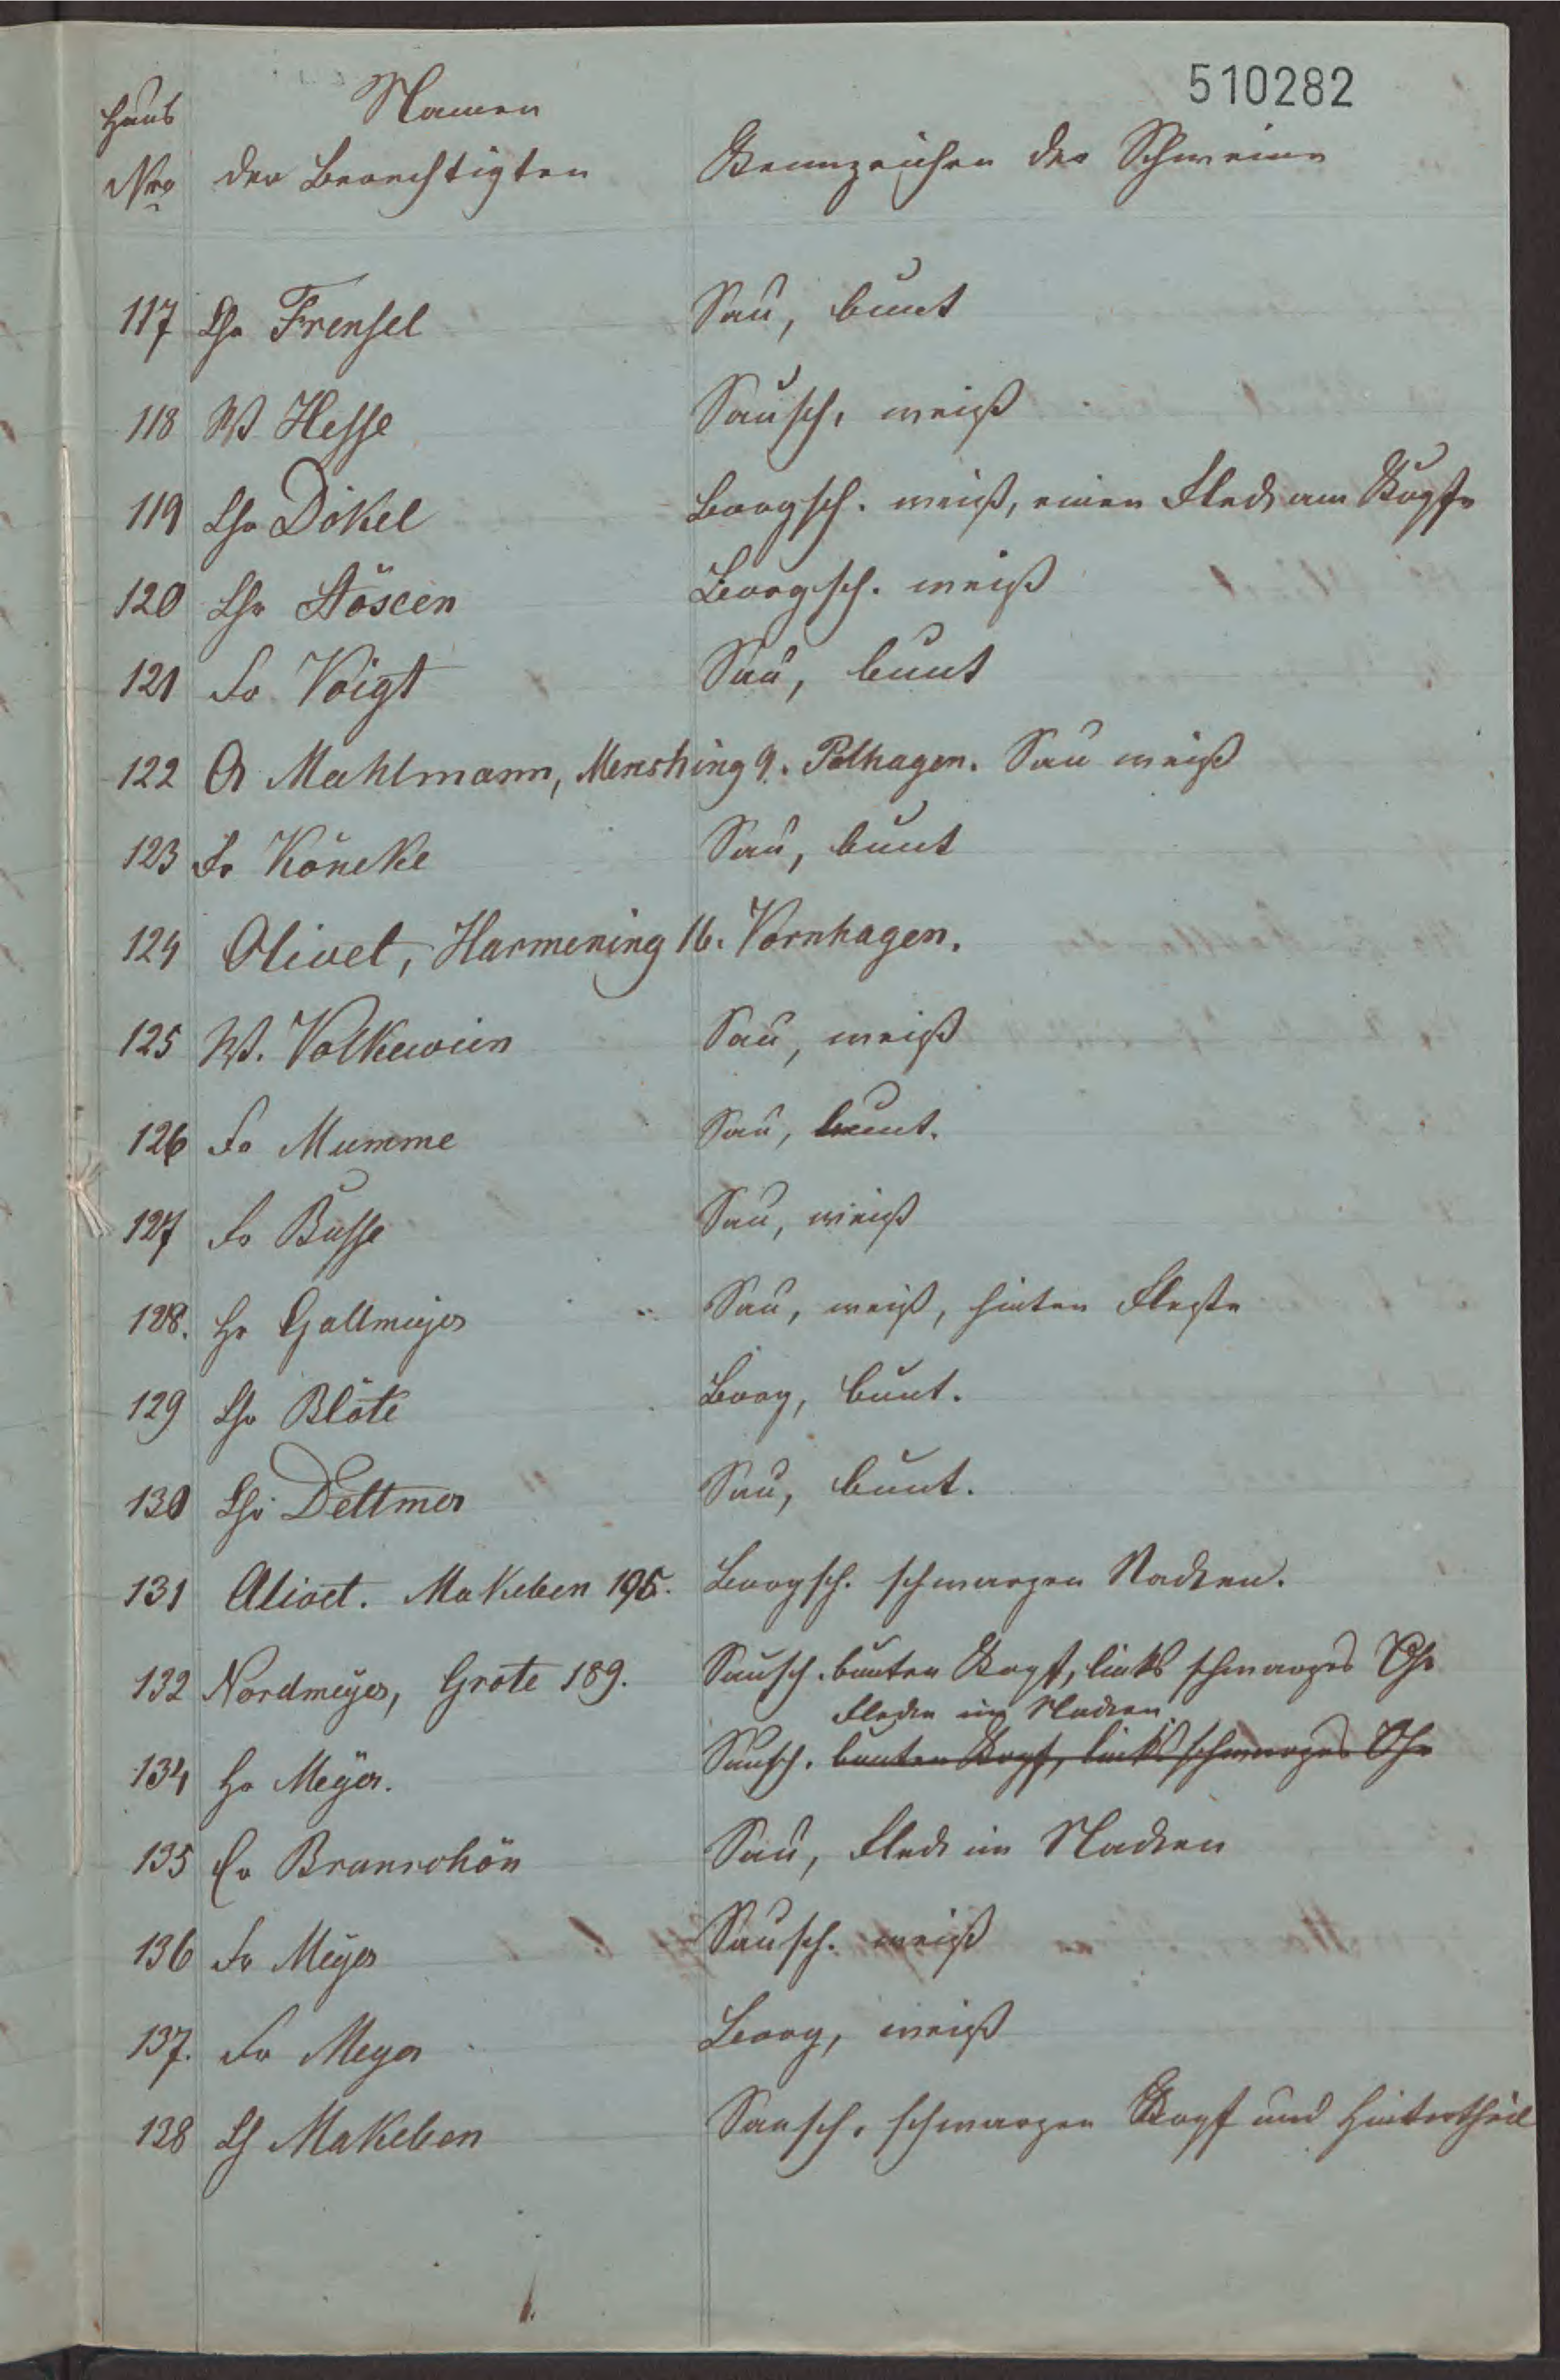 510282
Haus Namen
Nro der Berechtigten Kennzeichen der Schweine
117 Chr Frensel Sau, bunt
118 W Hesse Sausch. weiß
119 Chr Dökel Borgsch. weiß, einen Fleck am Kopfe
120 Chr Stöscen Borgsch. weiß
121 Fr Voigt Sau, bunt
122 A Mahlmann, Mensching 9. Polhagen. Sau weiß
123 Fr Köneke Sau, bunt
124 Olivet, Harmening 16. Vornhagen.
125 W. Volkewien Sau, weiß
126 Fr Mumme Sau, bunt.
127 Fr Busse Sau, weiß
128. Hr Gallmeyer Sau, weiß, hinten Flecke
129 Chr Blöte Borg, bunt.
130 Chr Dettmer Sau, bunt.
131 Olivet. Makeben 195. Borgsch. schwarzen Nacken.
132 Nordmeyer, Grote 189. Sausch. bunten Kopf, links schwarzes Ohr
Flecken im Nacken
134 Hr Meyer. Sausch. bunten Kopf, links schwarzes Ohr
135 Cr Brunschön Sau, Fleck im Nacken
136 Fr Meyer Sausch. weiß
137. Fr Meyer Borg, weiß
138 Ch Makeben Sausch. schwarzen Kopf und Hintertheil